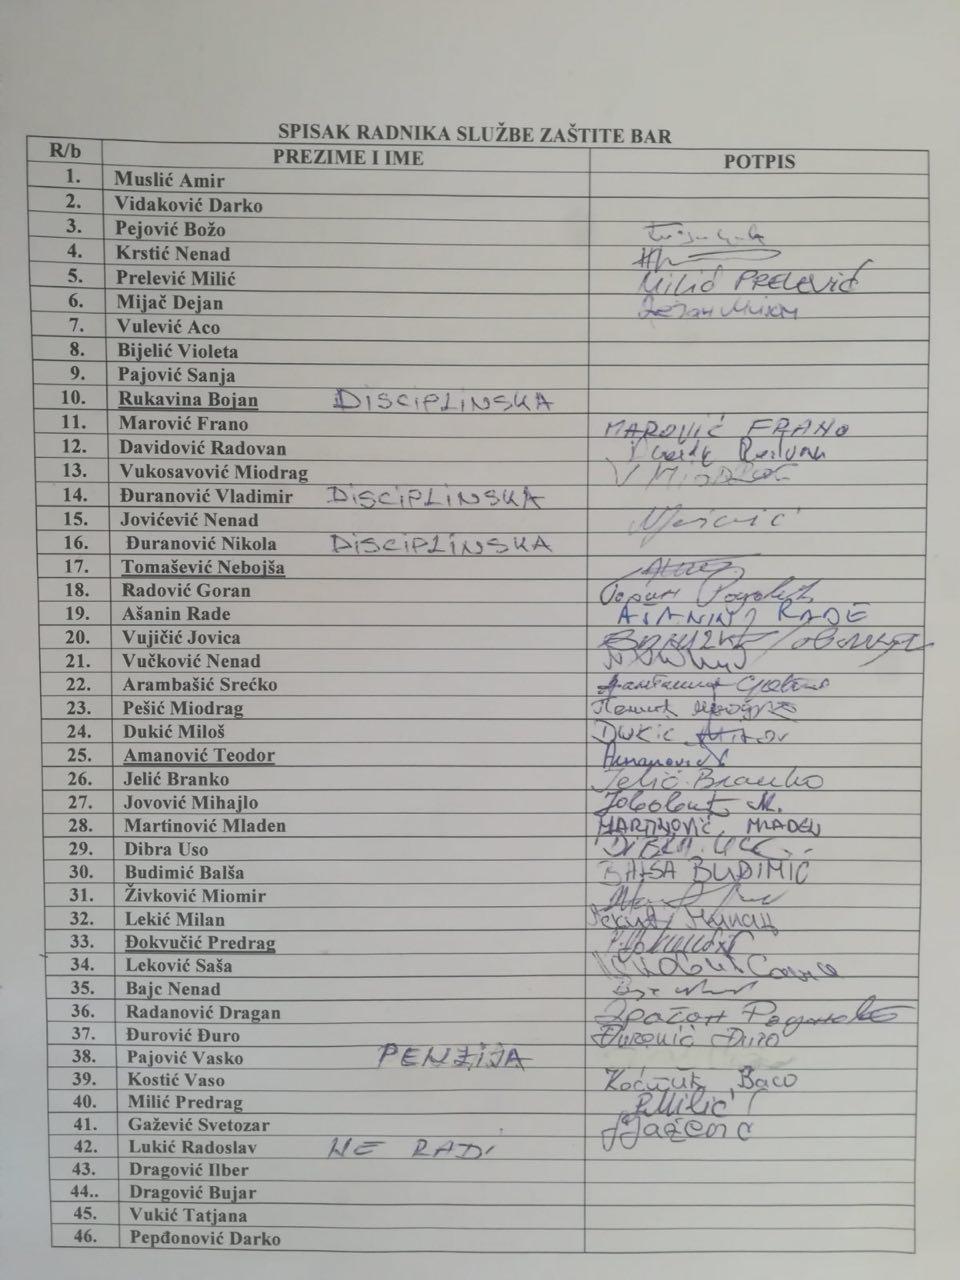 SPISAK RADNIKA SLUŽBE ZAŠTITE BAR
R/b PREZIME I IME POTPIS
1. Muslić Amir
2. Vidaković Darko
3. Pejović Božo
4. Krstić Nenad
5. Prelević Milić MILIĆ PRELEVIĆ
6. Mijač Dejan
7. Vulević Aco
8. Bijelić Violeta
9. Pajović Sanja
10. Rukavina Bojan DISCIPLINSKA
11. Marović Frano MAROVIĆ FRANO
12. Davidović Radovan
13. Vukosavović Miodrag
14. Đuranović Vladimir DISCIPLINSKA
15. Jovićević Nenad
16. Đuranović Nikola DISCIPLINSKA
17. Tomašević Nebojša
18. Radović Goran
19. Ašanin Rade AŠANIN RADE
20. Vujičić Jovica
21. Vučković Nenad
22. Arambašić Srećko
23. Pešić Miodrag
24. Dukić Miloš DUKIĆ
25. Amanović Teodor Amanović
26. Jelić Branko Jelić Branko
27. Jovović Mihajlo
28. Martinović Mladen MARTINOVIĆ MLADEN
29. Dibra Uso
30. Budimić Balša BALŠA BUDIMIĆ
31. Živković Miomir
32. Lekić Milan
33. Đokvučić Predrag
34. Leković Saša
35. Bajc Nenad
36. Radanović Dragan
37. Đurović Đuro Đurović Đuro
38. Pajović Vasko PENZIJA
39. Kostić Vaso
40. Milić Predrag P.Milić
41. Gažević Svetozar
42. Lukić Radoslav NE RADI
43. Dragović Ilber
44.. Dragović Bujar
45. Vukić Tatjana
46. Pepđonović Darko